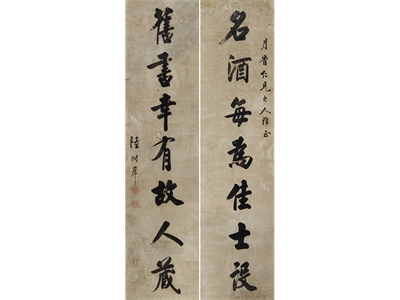 月晉仁兄大人雅正
名酒每為佳士設
舊書幸有故人藏
陸潤庠